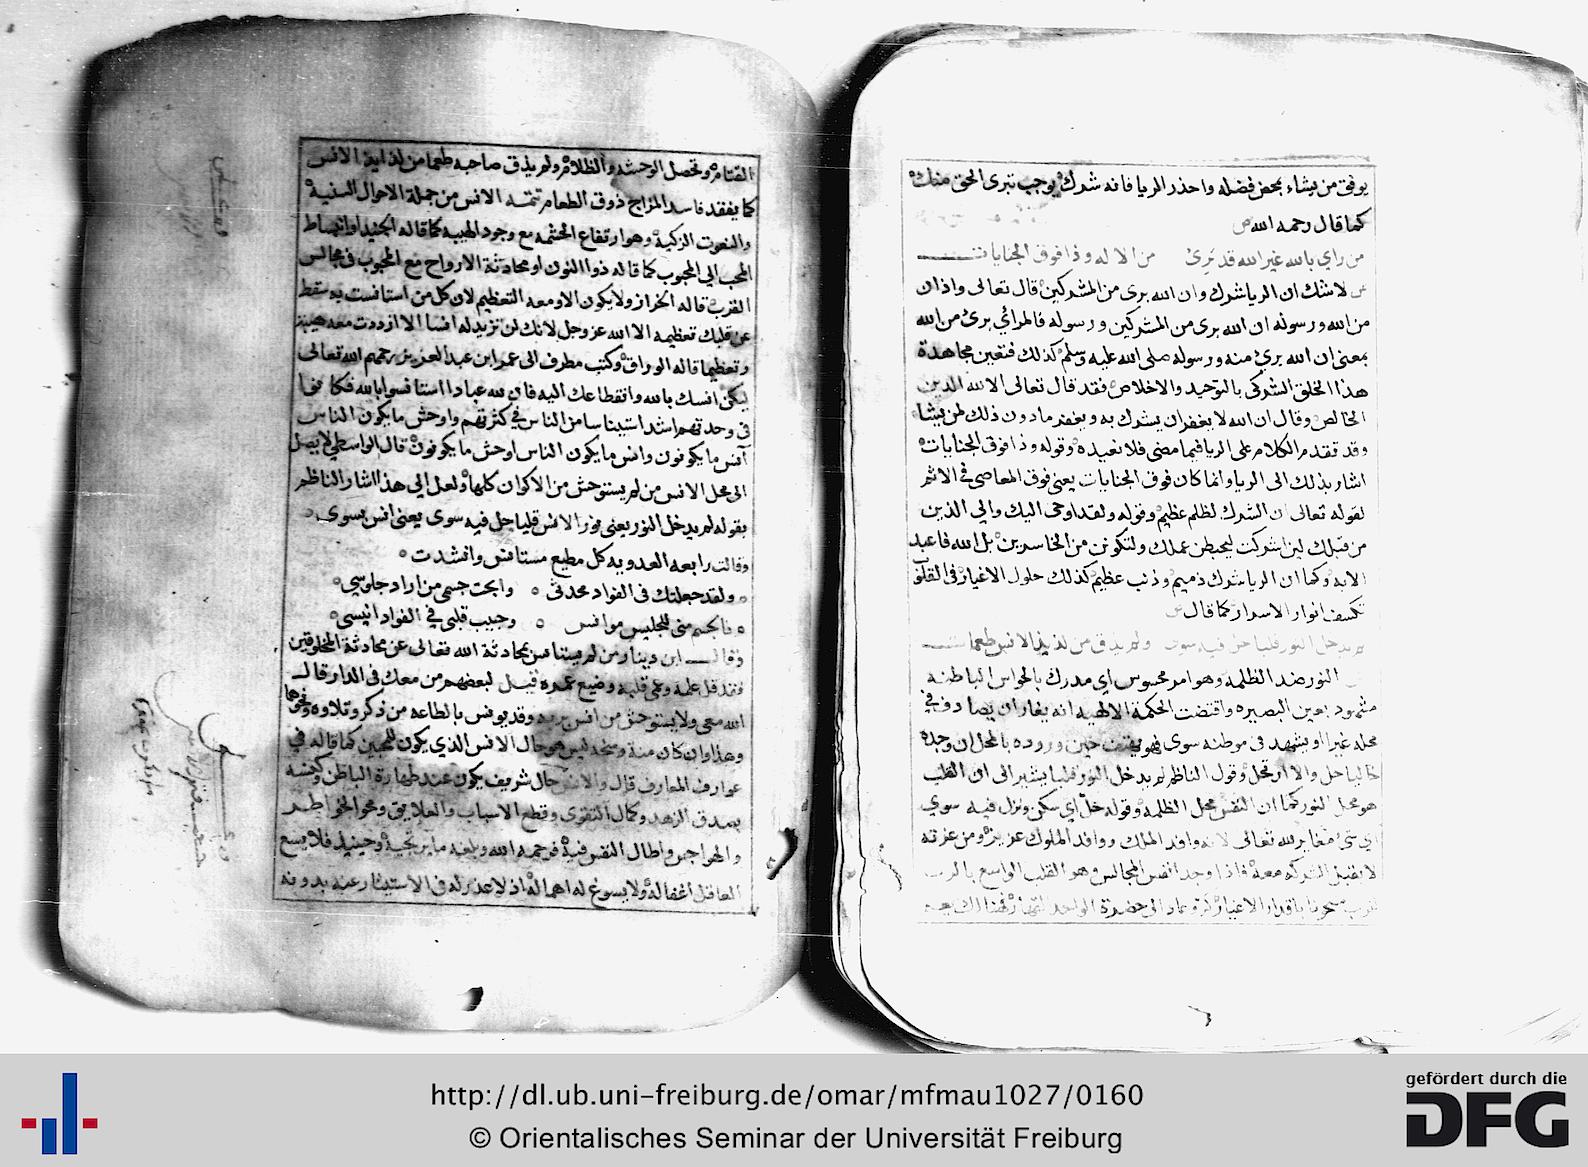 يوفق من يشاء بمحض فضله واحذر الريا فانه شرك يوجب تبرى الحق منك
كما قال رحمه الله
من راي بالله غير الله قد بَرِئ من الاله وذا فوق الجنايات
لاشك ان الريا شرك وان الله برى من المشركين قال تعالى واذان
من الله ورسوله ان الله برى من المشركين ورسوله فالمرائي برئ من الله
بمعنى ان الله برئ منه ورسوله صلى الله عليه وسلم كذلك فتعين مجاهدة
هذا الخلق الشركى بالتوحيد والاخلاص فقد قال تعالى الا لله الدين
الخالص وقال ان الله لا يغفر ان يشرك به ويغفر ما دون ذلك لمن يشاء
وقد تقدم الكلام على الريا فيما مضى فلا نعيده وقوله وذا فوق الجنايات
اشار بذلك الى الريا وانما كان فوق الجنايات يعنى فوق المعاصى فى الاثم
لقوله تعالى ان الشرك لظلم عظيم وقوله ولقد اوحى اليك والى الذين
من قبلك لين اشركت ليحبطن عملك ولتكونن من الخاسرين بل الله فاعبد
الايه وكما ان الريا شرك ذميم وذنب عظيم كذلك حلول الاغيار فى القلوب
تكسف انوار الاسرار كما قال
لم يدخل النور قلبا حل فيه سوى ولم يذق من لذيذ الانس طعما
النور ضد الظلمه وهو امر محسوس اي مدرك بالحواس الباطنه
مشهود بعين البصيره واقتضت الحكمة الالهيه انه يغار ان يصادف في
محله غيرا او يشهد فى موطنه سوى فهو يقف حين وروده بالمحل ان وجده
خاليا حل والا ارتحل وقول الناظم لم يدخل النور قلبا يشير الى ان القلب
هو محل النور كما ان النفس محل الظلمه وقوله حل اي سكن ونزل فيه سوي
اي شئ مغاير لله تعالى لانه وافد الملك ووافد الملوك عزيز ومن عزته
لا يقبل الشركه معه فاذا وجد انفس المجالس وهو القلب الواسع
الاغيار الى حضرة الواحد القهار
القتام وتحصل الوحشه والظلام ولم يذق صاحبه طعما من لذايذ الانس
كما يفقد فاسد المزاج ذوق الطعام تتمه الانس من جملة الاحوال السنية
والنعوت الزكية وهو ارتفاع الحشمه مع وجود الهيبه كما قاله الجنيد او انبساط
المحب الى المحبوب كما قاله ذو النون او محادثة الارواح مع المحبوب فى مجالس
القرب قاله الخراز ولا يكون الا ومعه التعظيم لان كل من استانست به سقط
عن قلبك تعظيمه الا الله عز وجل لانك لن تزيد له انسا الا ازددت معه هيبة
وتعظيما قاله الوراق وكتب مطرف الى عمر ابن عبد العزيز رحمهم الله تعالى
ليكن انسك بالله وانقطاعك اليه فان لله عبادا استانسوا بالله فكانوا
فى وحدتهم اشد استيناسا من الناس في كثرتهم واوحش ما يكون الناس
آنس ما يكونون وانس ما يكون الناس اوحش ما يكونون قال الواسطي لا يصل
الى محل الانس من لم يستوحش من الاكوان كلها ولعل الى هذا اشار الناظم
بقوله لم يدخل النور يعنى نور الانس قلبا حل فيه سوى يعنى انس بسوى
وقالت رابعه العدويه كل مطيع مستانس وانشدت
ولقد جعلتك فى الفواد محدثى وابحت جسمي من اراد جلوسي
فالجسم منى للجليس موانس وحبيب قلبي في الفواد انيسى
وقال ابن دينار من لم يستانس بمحادثة الله تعالى عن محادثة المخلوقين
فقد قل علمه وعمى قلبه وضيع عمره قيل لبعضهم من معك فى الدار قال
الله معى ولا يستوحش من انس بربه وقد يونس بالطاعه من ذكر وتلاوه ونحوها
وهذا وان كان منة ومنحه ليس هو حال الانس الذي يكون للمحبين كما قاله في
عوارف المعارف قال والانس حال شريف يكون عند طهارة الباطن وكنسه
بصدق الزهد وكمال التقوى وقطع الاسباب والعلايق ومحو الخواطر
والهواجس واطال النفس فيه فرحمه الله وبلغه ما يرتجيه وحينيذ فلا يسع
العاقل اغفاله ولا يسوغ له اهماله اذ لا عذر له فى الاستيثار عنه بدونه
http://dl.ub.uni-freiburg.de/omar/mfmau1027/0160
© Orientalisches Seminar der Universität Freiburg
gefördert durch die
DFG